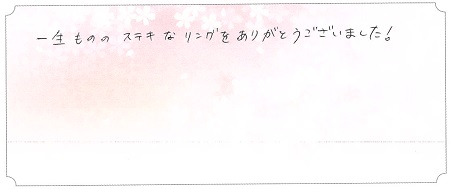 一生ものの ステキな リングを ありがとうございました!